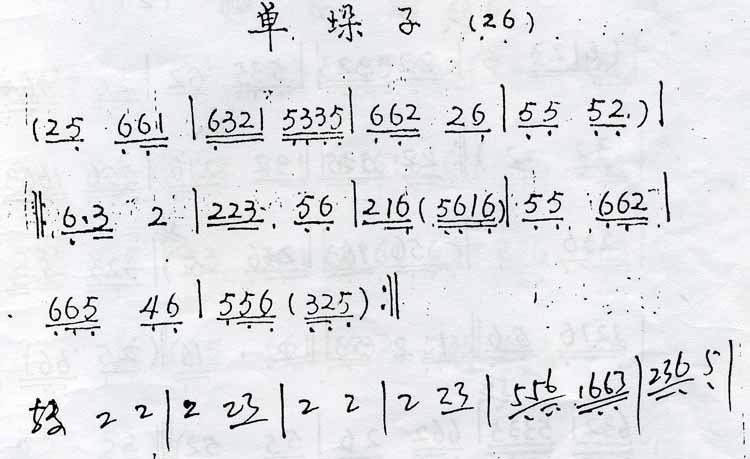 单垛子 (26)
(25 661 | 6321 5335 | 662 26 | 55 52.) |
‖: 6.3 2 | 223. 56 | 216 (5616) | 55 662 |
665 46 | 556 (325) :‖
2 2 | 2 23 | 2 2 | 2 23 | 556 1663 | 236 5 |